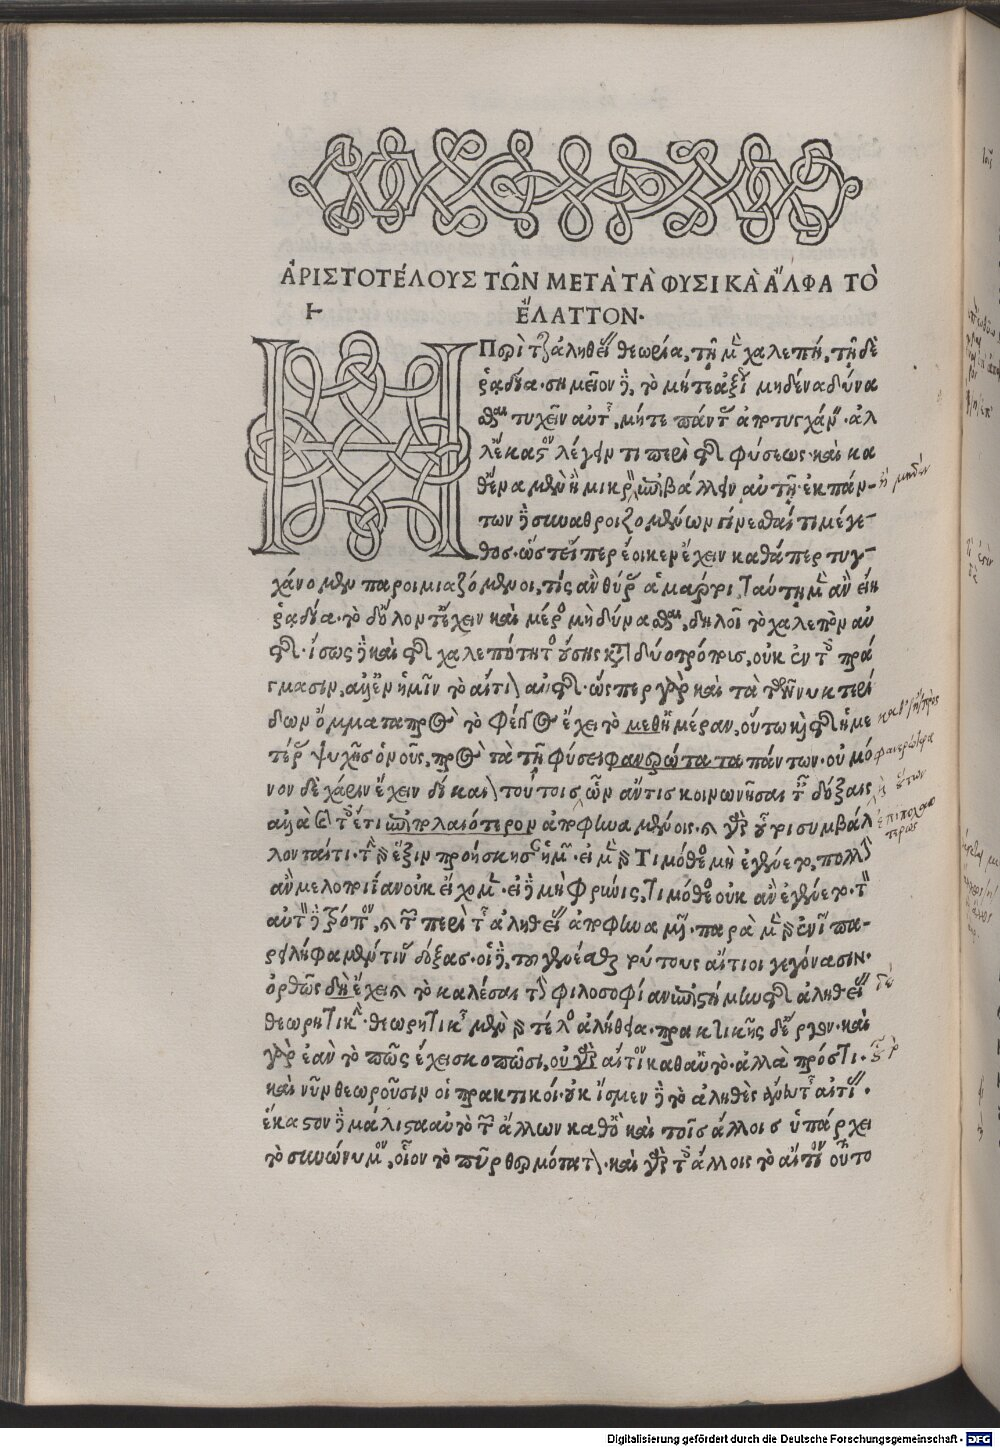 ἈΡΙΣΤΟΤΈΛΟΥΣ ΤΩ͂Ν ΜΕΤᾺ ΤᾺ ΦΥΣΙΚᾺ ἌΛΦΑ ΤῸ
ἜΛΑΤΤΟΝ·
Η Περὶ τῆς ἀληθείας θεωρία, τῇ μὲν χαλεπή, τῇ δὲ
ῥᾳδία· σημεῖον δὲ, τὸ μήτε ἀξίως μηδένα δύνα
σθαι τυχεῖν αὐτῆς, μήτε πάντας ἀποτυγχάνειν· ἀλ
λ' ἕκαστον λέγειν τι περὶ τῆς φύσεως· καὶ κα
θ' ἕνα μὲν ἢ μικρὸν ἐπιβάλλειν αὐτῇ· ἐκ πάν-
ἢ μηδὲν
των δὲ συναθροιζομένων γίνεσθαί τι μέγε-
θος· ὥστ' εἴπερ ἔοικεν ἔχειν καθάπερ τυγ-
χάνομεν παροιμιαζόμενοι, τίς ἂν θύρας ἁμάρτοι, ταύτῃ μὲν ἂν εἴη
ῥᾳδία· τὸ δ' ὅλον τ' ἔχειν καὶ μέρος μὴ δύνασθαι, δηλοῖ τὸ χαλεπὸν αὐ
τῆς· ἴσως δὲ καὶ τῆς χαλεπότητος οὔσης κατὰ δύο τρόπους, οὐκ ἐν τοῖς πρά
γμασιν, ἀλλ' ἐν ἡμῖν τὸ αἴτιον αὐτῆς· ὥσπερ γὰρ καὶ τὰ τῶν νυκτερί
δων ὄμματα πρὸς τὸ φέγγος ἔχει τὸ μεθ' ἡμέραν, οὕτω καὶ τῆς ἡμε
τέρας ψυχῆς ὁ νοῦς, πρὸς τὰ τῇ φύσει φανερώτατα πάντων· οὐ μό
νον δὲ χάριν ἔχειν δίκαιον τούτοις ὧν ἄν τις κοινωνῆσαι ταῖς δόξαις
ἀλλὰ καὶ τοῖς ἔτι ἐπιπλαιότερον ἀποφηναμένοις· καὶ γὰρ οὗτοι συμβάλ
λονταί τι· τὴν γὰρ ἕξιν προήσκησαν ἡμῶν· εἰ μὲν γὰρ Τιμόθεος μὴ ἐγένετο, πολλὴν
ἂν μελοποιΐαν οὐκ εἴχομεν· εἰ δὲ μὴ Φρῦνις, Τιμόθεος οὐκ ἂν ἐγένετο· τὸν
αὐτὸν δὲ τρόπον, καὶ τῶν περὶ τῆς ἀληθείας ἀποφηναμένων· παρὰ μὲν γὰρ ἐνίων πα-
ρειλήφαμέν τινας δόξας· οἱ δὲ, τοῦ γενέσθαι τούτους αἴτιοι γεγόνασιν·
ὀρθῶς δὴ ἔχει καὶ τὸ καλέσαι τὴν φιλοσοφίαν ἐπιστήμην τῆς ἀληθείας
δὲ
θεωρητικήν· θεωρητικῆς μὲν γὰρ τέλος ἀλήθεια· πρακτικῆς δ' ἔργον· καὶ
γὰρ ἐὰν τὸ πῶς ἔχει σκοπῶσι, οὐ γὰρ αἴτιον καθ' αὑτὸ· ἀλλὰ πρός τι·
καὶ νῦν θεωροῦσιν οἱ πρακτικοί· οὐκ ἴσμεν δὲ τὸ ἀληθὲς ἄνευ τῆς αἰτίας·
ἕκαστον δὲ μάλιστα αὐτὸ τῶν ἄλλων καθ' ὃ καὶ τοῖς ἄλλοις ὑπάρχει
τὸ συνώνυμον, οἷον τὸ πῦρ θερμότατον· καὶ γὰρ τοῖς ἄλλοις τὸ αἴτιον οὗτο
Digitalisierung gefördert durch die Deutsche Forschungsgemeinschaft - DFG